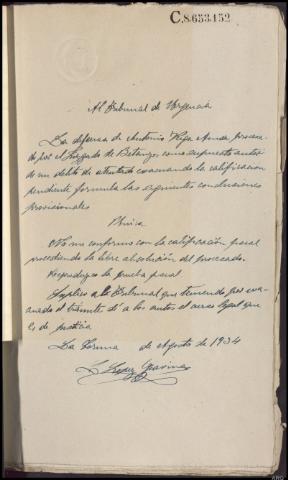 C.8.653.152
Al Tribunal de Urgencia
La defensa de Antonio procesa-
do por el Juzgado de Betanzos, como supuesto autor
de un delito de atentado evacuando la calificación
pendiente formula las siguientes conclusiones
provisionales
Unica
No me conformo con la calificación fiscal
procediendo la libre absolución del procesado.
Reproduzco la prueba fiscal
Suplico a la Tribunal que teniendo por eva-
cuado el trámite dé a los autos el curso legal que
es de justicia
La Coruña de Agosto de 1934
L. Lopez